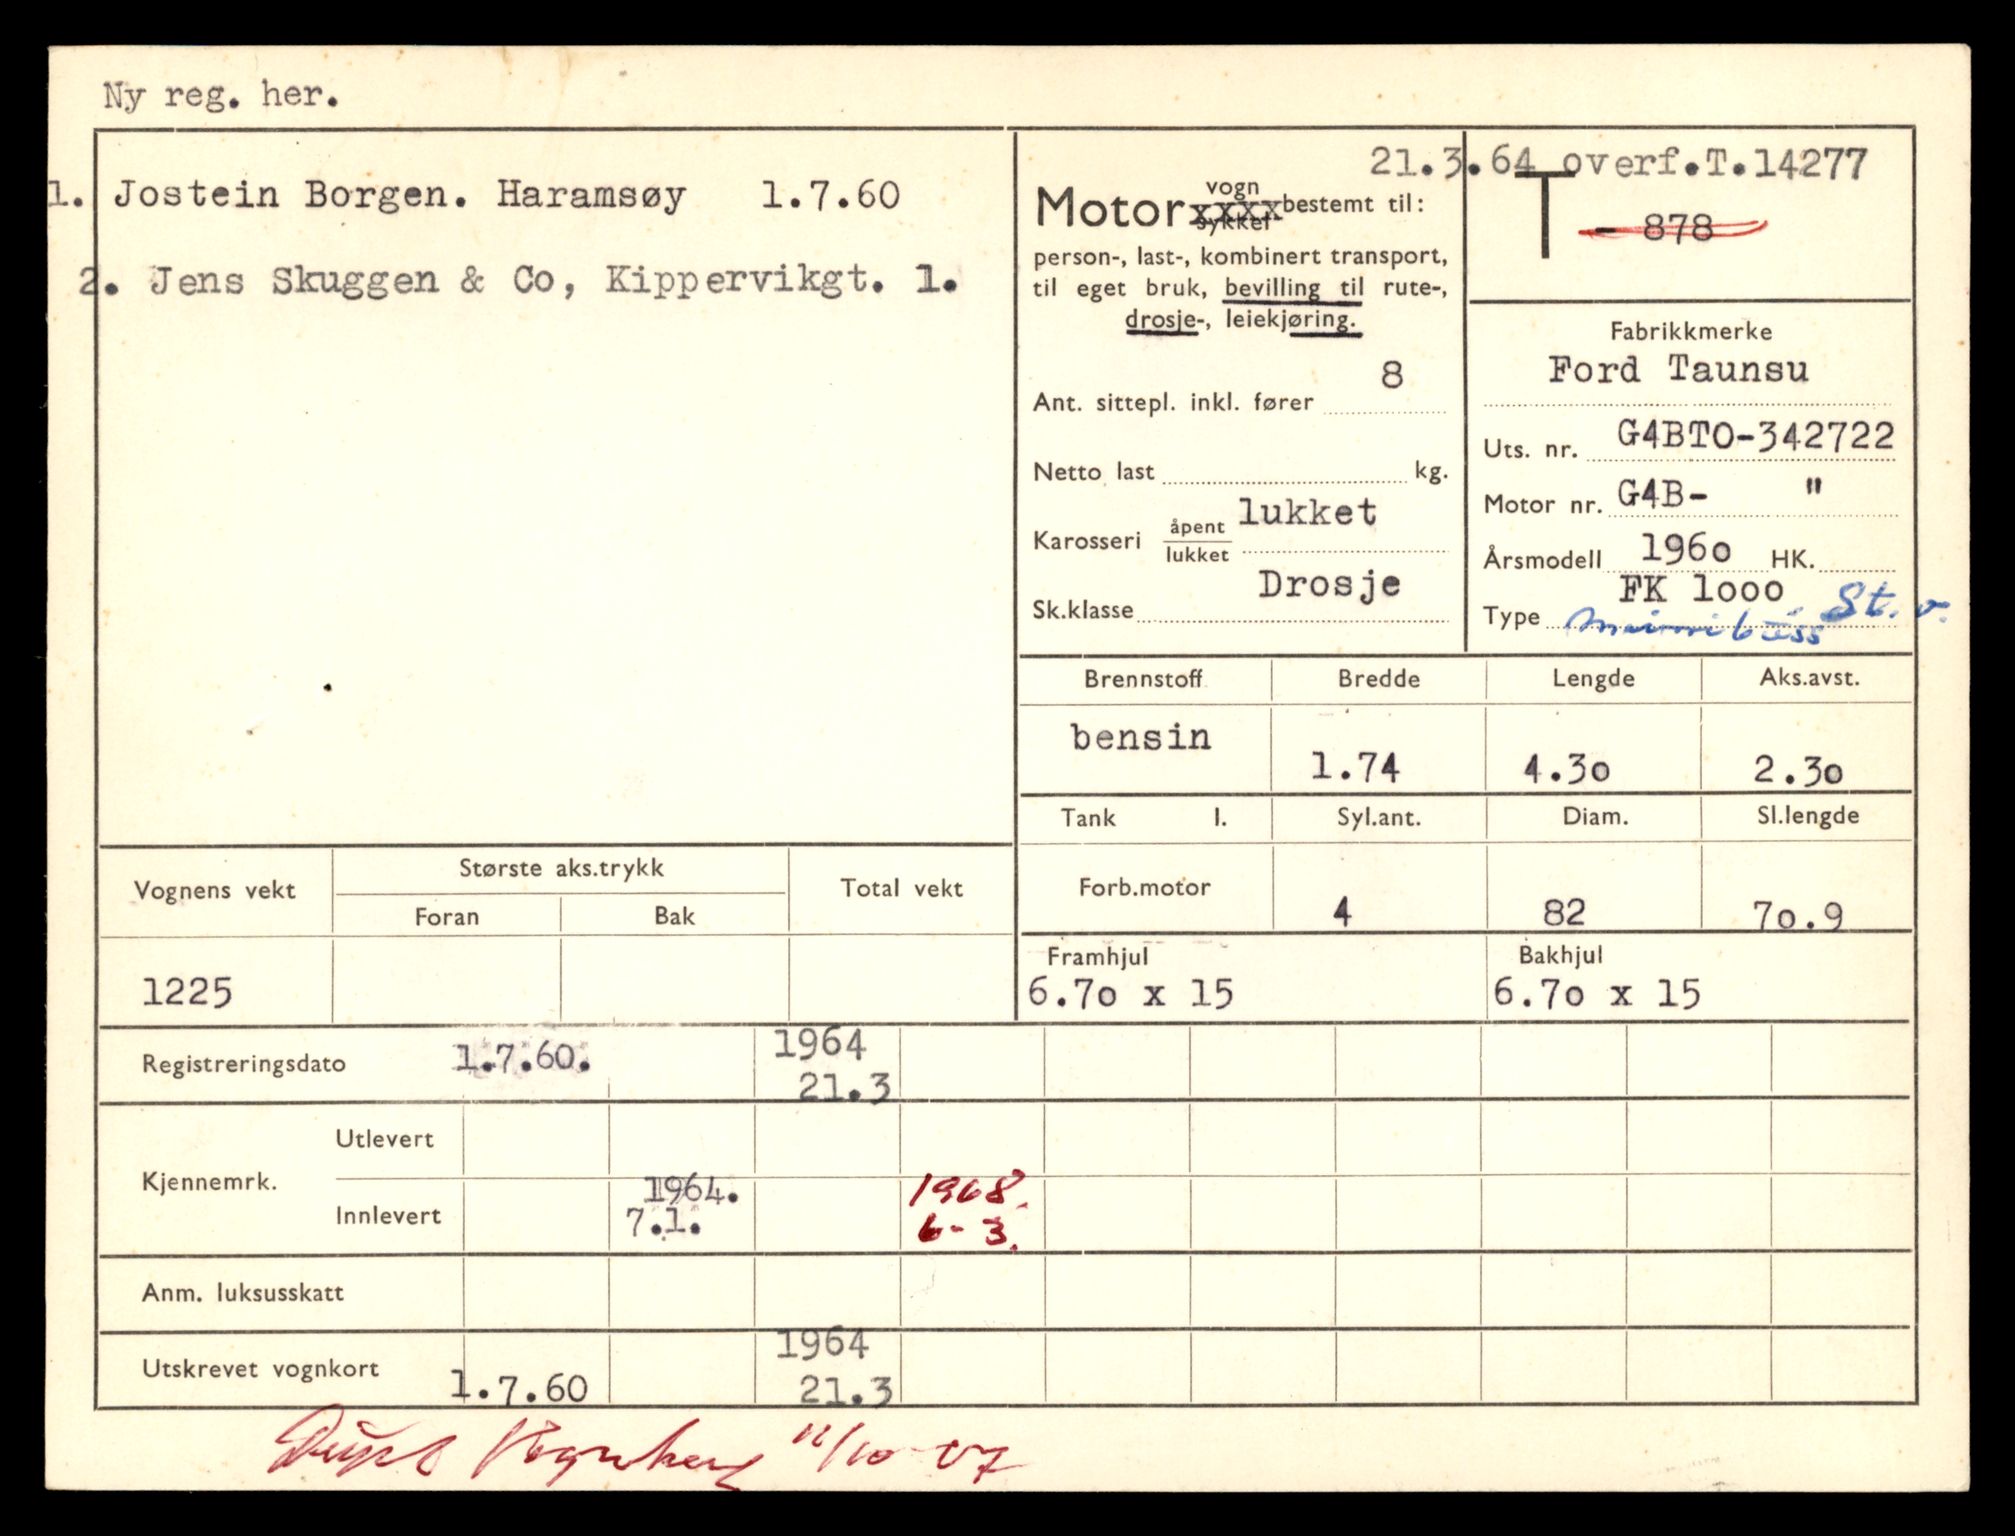 Ny reg. her.
1. Jostein Borgen. Haramsøy 1.7.60
2. Jens Skuggen & Co, Kippervikgt. 1.
21.3.64 overf.T.14277
Motor vogn xxxx sykkel bestemt til:
person-, last-, kombinert transport,
til eget bruk, bevilling til rute-,
drosje-, leiekjøring.
T - 878
Ant. sittepl. inkl. fører 8
Netto last kg.
Karosseri åpent lukket lukket
Sk.klasse Drosje
Fabrikkmerke
Ford Taunsu
Uts. nr. G4BTO-342722
Motor nr. G4B- "
Årsmodell 196o HK.
FK 1ooo St. v.
Type minibuss
Brennstoff Bredde Lengde Aks.avst.
bensin 1.74 4.3o 2.3o
Tank l. Syl.ant. Diam. Sl.lengde
Forb.motor 4 82 7o.9
Framhjul Bakhjul
6.7o x 15 6.7o x 15
Vognens vekt Største aks.trykk Total vekt
Foran Bak
1225
Registreringsdato 1.7.60. 1964
21.3
Kjennemrk. Utlevert
Innlevert 1964. 1968.
7.1. 6-3.
Anm. luksusskatt
Utskrevet vognkort 1.7.60 1964
21.3